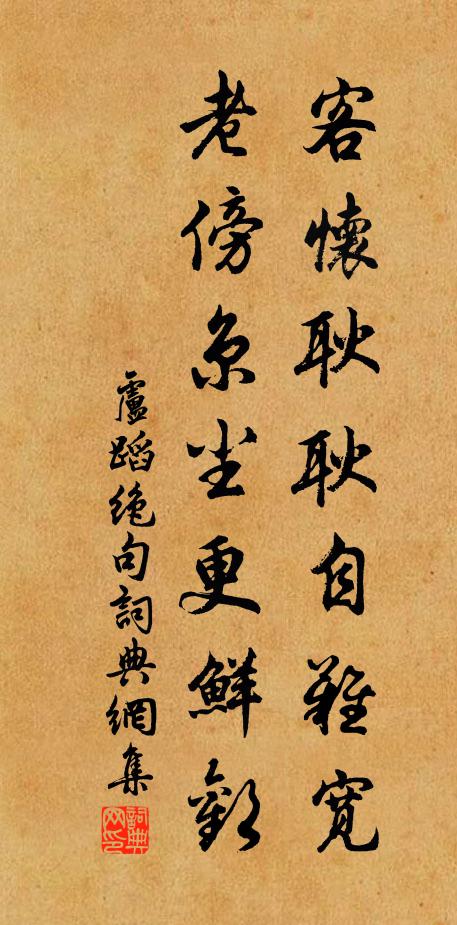 客懷耿耿自難寬
老傍京塵更鮮歡
盧蹈絕句詞典網集
詞典网印